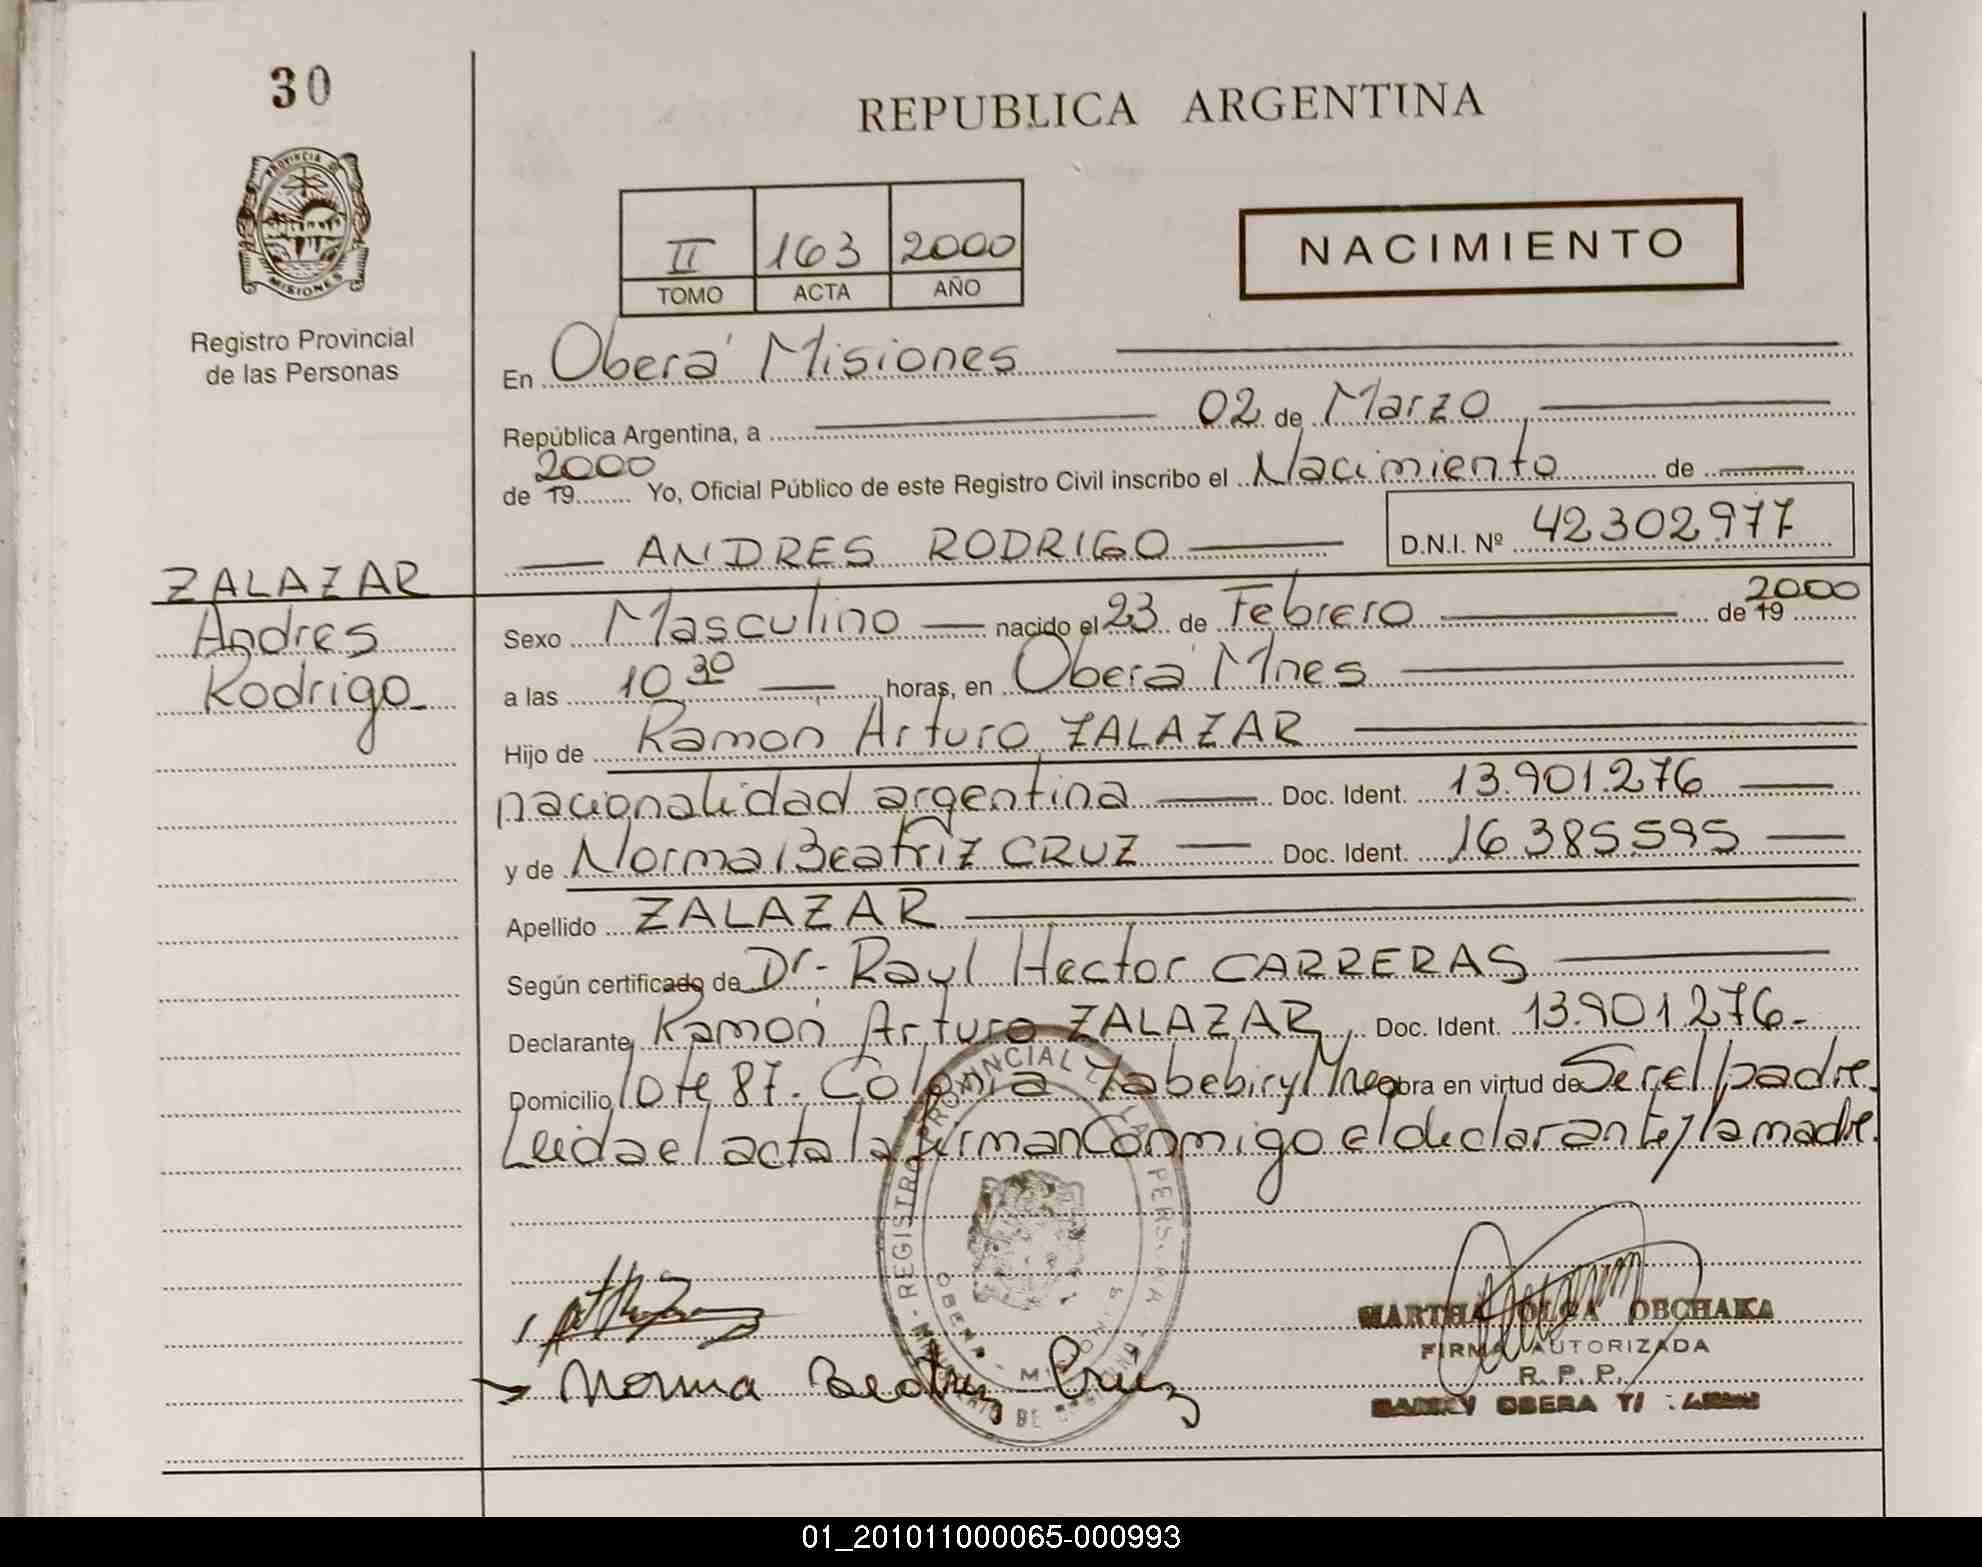 30
PROVINCIA DE
MISIONES
Registro Provincial
de las Personas
REPUBLICA ARGENTINA
II 163 2000
TOMO ACTA AÑO
NACIMIENTO
En Oberá Misiones
República Argentina, a 02 de Marzo
2000
de 19 Yo, Oficial Público de este Registro Civil inscribo el Nacimiento de
ANDRES RODRIGO D.N.I. Nº 42302977
ZALAZAR
Andres
Rodrigo
2000
Sexo Masculino nacido el 23 de Febrero de 19
a las 10 30 horas, en Oberá Mnes
Hijo de Ramon Arturo ZALAZAR
nacionalidad argentina Doc. Ident. 13.901.276
y de Norma Beatriz CRUZ Doc. Ident. 16.385.595
Apellido ZALAZAR
Según certificado de Dr. Raul Hector CARRERAS
Declarante Ramon Arturo ZALAZAR Doc. Ident. 13.901.276
Domicilio lote 87. Colonia Yabebiry Mnes obra en virtud de Ser el padre.
Leida el acta la firman conmigo el declarante y la madre.
REGISTRO PROVINCIAL DE LAS PERS.
OBERA - MISIONES
Norma Beatriz Cruz
MARTHA OLGA OBCHAKA
FIRMA AUTORIZADA
R. P. P.
OBERA
01_201011000065-000993